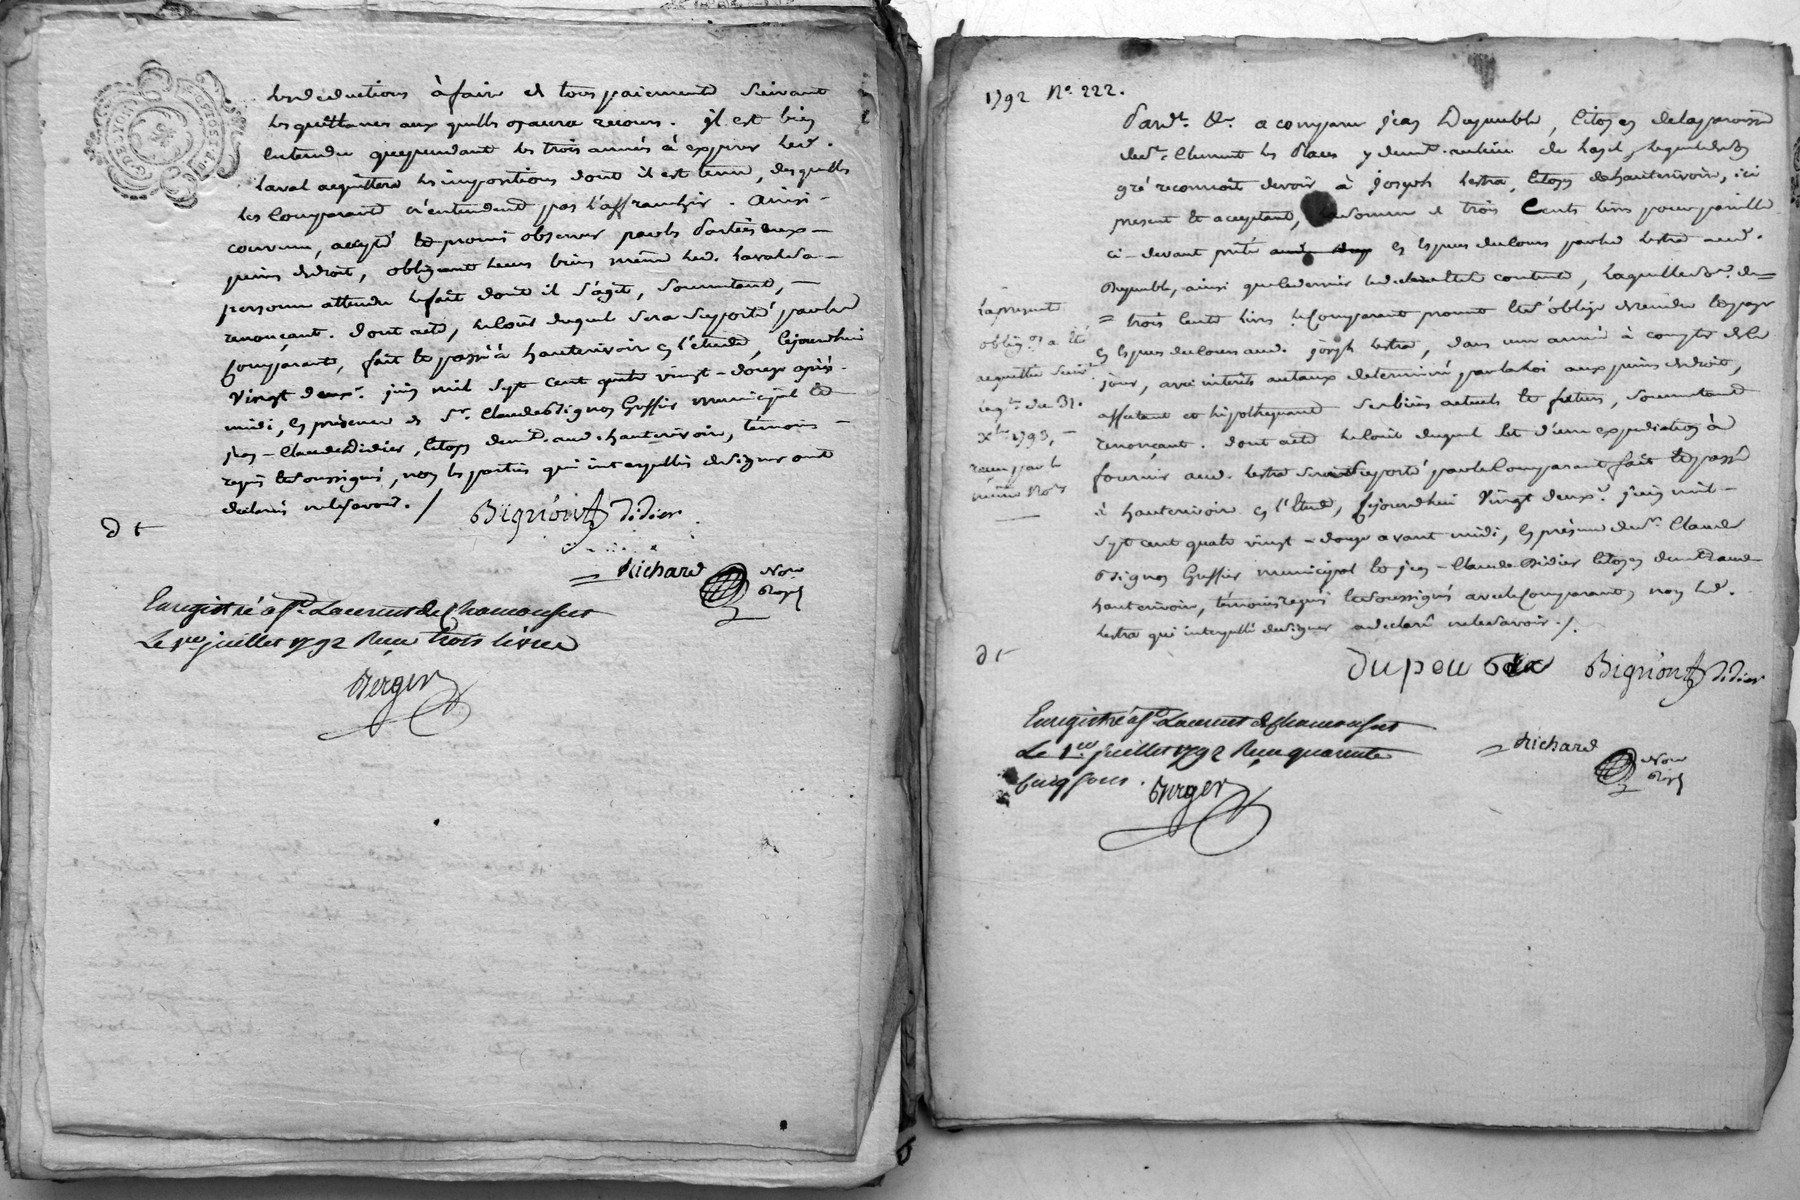 les deductions à faire et tous paiements suivant
les quittances aux quelles on aura recours. Il est bien
entendu que pendant les trois années à expirer led.
Laval acquittera les impositions dont il est tenu, desquelles
les Comparants n'entendent pas l'affranchir. Ainsi
convenu, accepté et promis observer par les Parties aux
peines de droit, obligeant leurs biens même led. Laval sa
personne attendu le fait dont il s'agit, soumettant,
renonçant. Dont acte, le coût duquel sera supporté par les
Comparants, fait et passé à hauterivoir en l'étude, cejourdhui
Vingt deux juin mil sept cent quatre vingt-douze après
midi, en présence de Sr. Claude Bignon Greffier municipal et
jean-Claude Didier, citoyens demt. aud. hauterivoir, témoins
requis et soussignés, non les parties qui interpellées de signer ont
déclaré ne le savoir./
Bignon Didier
d t
= Richard Nore Royal
Enregistré a St Laurent de Chamousset
Le 1er juillet 1792 Reçu trois livres
Berger
1792 N° 222.
Pardt. &c. a comparu jean Dupeuble, Citoyen de la paroisse
de St. Clement les Places y demt. au lieu de lequel de son
gré reconnoit devoir à joseph Lestra, Citoyen de hauterivoir, ici
present et acceptant, la somme de trois Cents livres pour pareille
ci-devant prêtée en especes du cours par led. Lestra aud.
Dupeuble, ainsi que le dernier content, laquelle Se. de
= trois Cents livres le Comparant promet et s'oblige de rendre et payer
en especes du cours aud. joseph Lestra, dans une année à compter de ce
jour, avec intérêts au taux déterminé par la loi aux peines de droit,
affectant et hipothequant ses biens actuels et futurs, soumettant
renonçant. Dont acte le coût duquel et d'une expedition à
fournir aud. Lestra sera supporté par le Comparant fait et passé
à hauterivoir en l'étude, cejourdhui Vingt deux juin mil
sept cent quatre vingt-douze avant midi, en présence de Sr. Claude
Bignon Greffier municipal et jean-Claude Didier citoyens demt. aud.
hauterivoir, témoins requis et soussignés avec le Comparant, non led.
Lestra qui interpellé de signer a déclaré ne le savoir./.
La presente
oblig.on a été
acquittée suivt.
qce. du 31.
Xbre 1793,
reçue par le
même Nore
d t
dupeuble Bignon Didier
= Richard Nore Royal
Enregistré a St Laurent de Chamousset
Le 1er juillet 1792 Reçu quarente
Cinq sous. Berger